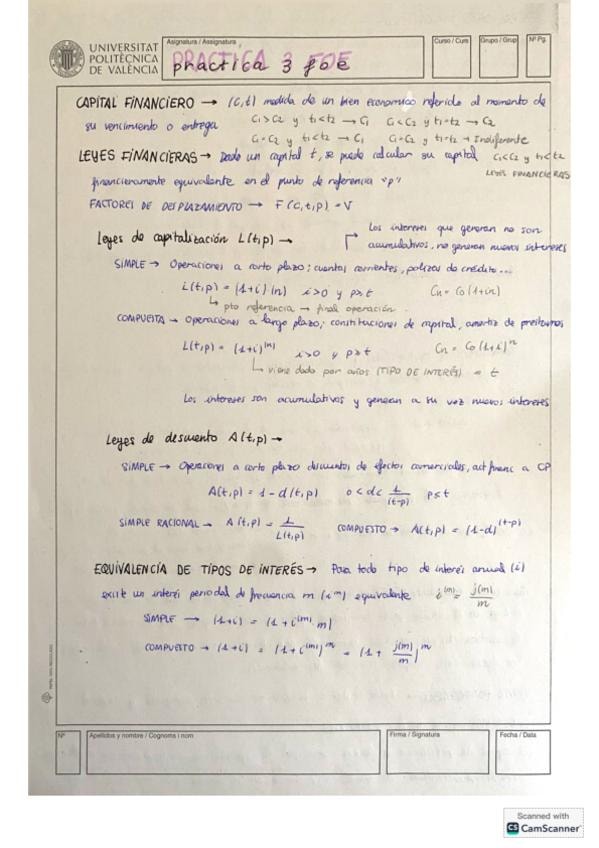 UNIVERSITAT
POLITÈCNICA
DE VALÈNCIA
Asignatura / Assignatura
PRACTICA 3 FOE
practica 3 foe
Curso / Curs
Grupo / Grup
Nº Pg.
CAPITAL FINANCIERO → (C,t) medida de un bien economico referido al momento de
su vencimiento o entrega C1>C2 y t1<t2 → C1 C1<C2 y t1=t2 → C2
C1=C2 y t1<t2 → C1 C1=C2 y t1=t2 → Indiferente
LEYES FINANCIERAS → Dado un capital t, se puede calcular su capital C1<C2 y t1<t2
LEYES FINANCIERAS
financieramente equivalente en el punto de referencia "p"
FACTORES DE DESPLAZAMIENTO → F(C,t,p) = V
Leyes de capitalización L(t,p) → Los intereses que generan no son
acumulativos, no generan nuevos intereses
SIMPLE → Operaciones a corto plazo; cuentas corrientes, polizas de crédito...
L(t,p) = (1+i)(n) i>0 y p≥t Cn = Co(1+in)
pto referencia → final operación
COMPUESTA → Operaciones a largo plazo; constituciones de capital, amortiz de prestamos
L(t,p) = (1+i)^(n) i>0 y p≥t Cn = Co(1+i)^n
viene dado por años (TIPO DE INTERÉS) = t
Los intereses son acumulativos y generan a su vez nuevos intereses
Leyes de descuento A(t,p) →
SIMPLE → Operaciones a corto plazo descuentos de efectos comerciales, act financ a CP
A(t,p) = 1-d(t,p) 0<d< 1/(t-p) p≤t
SIMPLE RACIONAL → A(t,p) = 1/L(t,p) COMPUESTO → A(t,p) = (1-d)^(t-p)
EQUIVALENCIA DE TIPOS DE INTERÉS → Para todo tipo de interés anual (i)
existe un interés periodal de frecuencia m (i^m) equivalente i^(m) = j(m)/m
SIMPLE → (1+i) = (1+i^(m) m)
COMPUESTO → (1+i) = (1+i^(m))^m = (1 + j(m)/m)^m
Nº
Apellidos y nombre / Cognoms i nom
Firma / Signatura
Fecha / Data
Scanned with
CS CamScanner